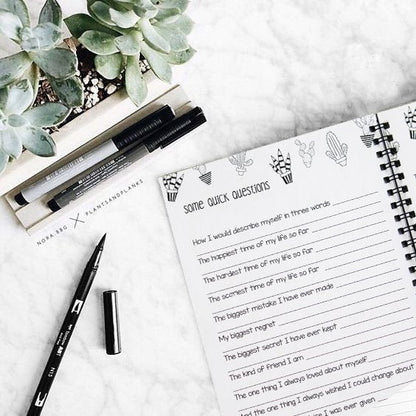 NORA BBG X PLANTSANDPLANKS
SOME QUICK QUESTIONS
How I would describe myself in three words
The happiest time of my life so far
The hardest time of my life so far
The scariest time of my life so far
The biggest mistake I have ever made
My biggest regret
The biggest secret I have ever kept
The kind of friend I am
The one thing I always loved about myself
And the one thing I always wished I could change about
I was ever given
Tombow
ABT
N15